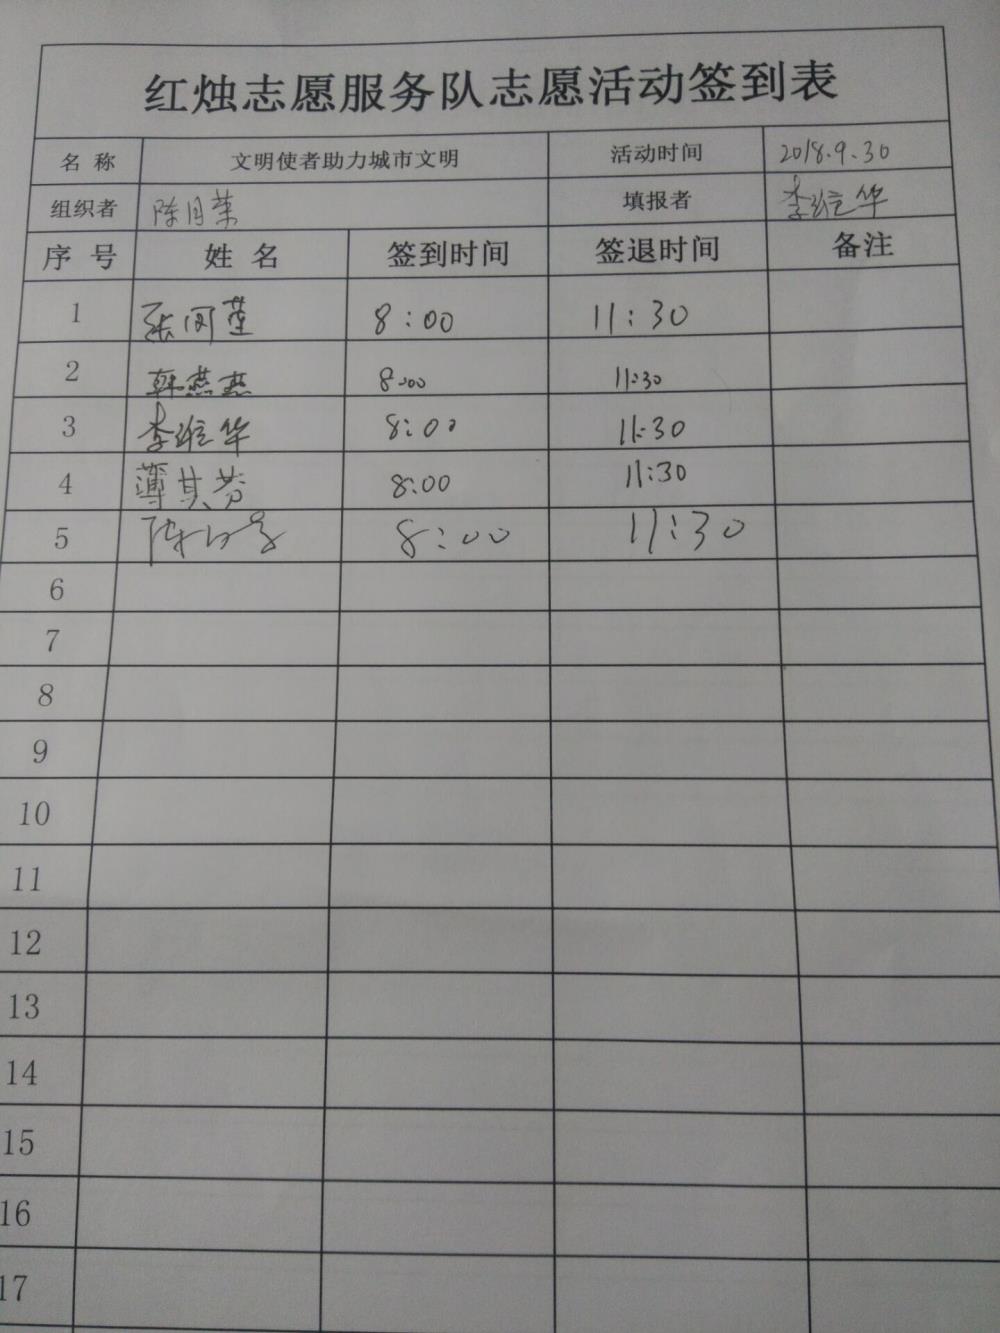 红烛志愿服务队志愿活动签到表
名 称 文明使者助力城市文明 活动时间 2018.9.30
组织者 陈月荣 填报者 李维华
序 号 姓 名 签到时间 签退时间 备注
1 张闵莲 8:00 11:30
2 韩燕燕 8:00 11:30
3 李维华 8:00 11:30
4 薄其芬 8:00 11:30
5 8:00 11:30
6
7
8
9
10
11
12
13
14
15
16
17